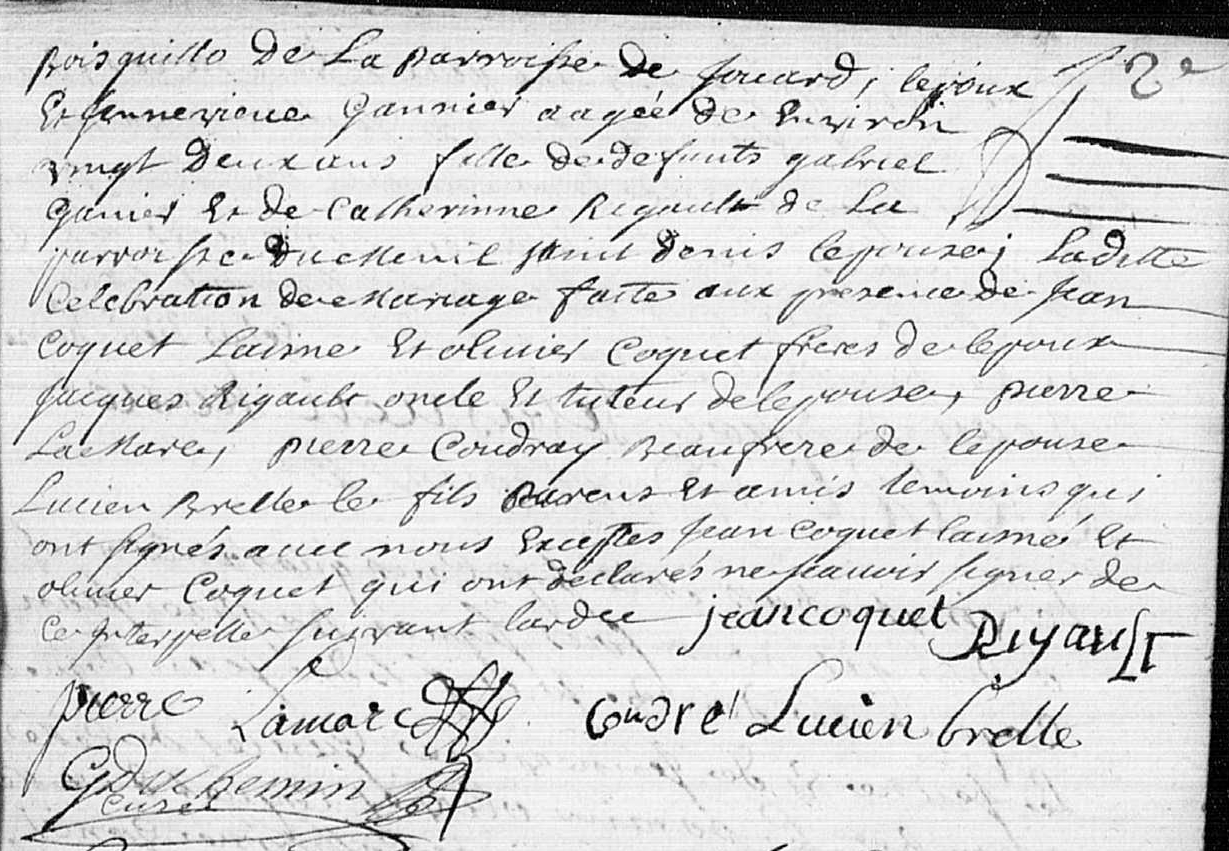 Boisquillo De La parroisse de Jouard, lepoux 2e
Et Jennevieve Gannier aagée de Environ
vingt Deux ans fille de defunts gabriel
Ganier Et de Catherinne Rigault de La
parroisse Du Menil saint Denis lepouse; Laditte
Celebration de Mariage faite aux presence de Jean
Coquet Laisne Et olivier Coquet freres de lepoux
Jacques Rigault oncle Et tuteur de lepouse, pierre
LaMare, pierre Coudray Beaufrere de lepouse
Lucien Brelle le fils parens Et amis temoins qui
ont signés avec nous Exceptes Jean Coquet laisné Et
olivier Coquet qui ont declarés ne scavoir signer de
ce Interpelle suyvant lardce jean coquet Rigault
pierre Lamare Coudre Lucien brelle
G Duchemin
curé